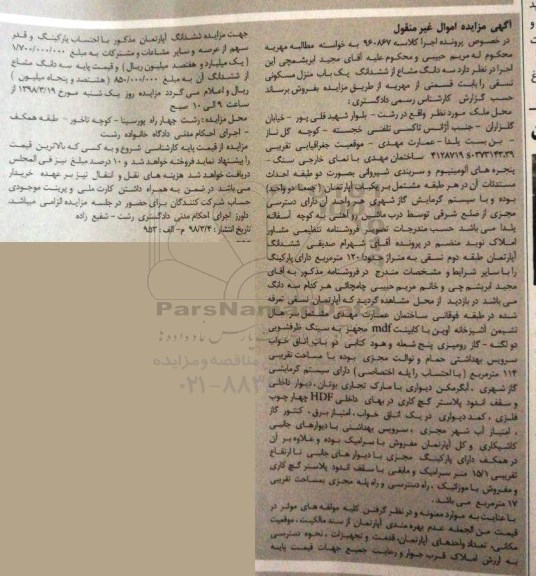 آگهی مزایده اموال غیر منقول
در خصوص پرونده اجرا کلاسه ۹۶۰۸۶۷ به خواسته مطالبه مهریه
محکوم له مریم حبیبی و محکوم علیه آقای مجید ابریشمچی این
اجرا در نظر دارد سه دانگ مشاع از ششدانگ یک باب منزل مسکونی
نسقی را بابت قسمتی از مهریه از طریق مزایده بفروش برساند
حسب گزارش کارشناس رسمی دادگستری :
محل ملک مورد نظر واقع در رشت - بلوار شهید قلی پور - خیابان
گلزاران - جنب آژانس تاکسی تلفنی خجسته - کوچه گل ناز
- بن بست یلدا - عمارت مهدی - موقعیت جغرافیایی تقریبی
ساختمان مهدی با نمای خارجی سنگ -
پنجره های آلومینیوم و سربندی شیروانی بصورت دو طبقه احداث
مستحدثات آن در هر طبقه مشتمل بر یکباب آپارتمان (جمعا دو واحد)
بوده و با سیستم گرمایش گاز شهری هر واحد آن دارای دسترسی
مجزی از ضلع شرقی توسط درب ماشین رو آهنی به کوچه آسفالته
یلدا می باشد حسب مندرجات تصویر فروشنامه تنظیمی مشاور
املاک نوید منضم در پرونده آقای شهرام صدیقی ششدانگ
آپارتمان طبقه دوم نسقی به متراژ حدودا ۱۲۰ مترمربع دارای پارکینگ
را با سایر شرایط و مشخصات مندرج در فروشنامه مذکور به آقای
مجید ابریشم چی و خانم مریم حبیبی چامچائی هر کدام سه دانگ
می باشد در بازدید از محل مشاهده گردید که آپارتمان نسقی تعرفه
شده در طبقه فوقانی ساختمان عمارت مهدی مشتمل بر هال
نشیمن آشپزخانه اوپن با کابینت mdf مجهز به سینک ظرفشویی
دو لگنه - گاز رومیزی پنج شعله و هود کتابی دو باب اتاق خواب
سرویس بهداشتی حمام و توالت مجزی بوده با مساحت تقریبی
۱۱۴ مترمربع (با احتساب راه پله اختصاصی) دارای سیستم گرمایشی
گاز شهری ، آبگرمکن دیواری با مارک تجاری بوتان ، دیوار داخلی
و سقف اندود پلاستر گچ کاری درب های داخلی HDF چهارچوب
فلزی ، کمد دیواری در یک اتاق خواب ، امتیاز برق ، کنتور گاز
، امتیاز آب شهر مجزی ، سرویس بهداشتی با دیوارهای جانبی
کاشیکاری و کل آپارتمان مفروش با سرامیک بوده و علاوه بر آن
در همکف دارای پارکینگ مجزی با دیوارهای جانبی تا ارتفاع
تقریبی ۱۵/۱ متر سرامیک و مابقی با سقف اندود پلاستر گچ کاری
و مفروش با موزائیک ، راه دسترسی و راه پله مجزی بمساحت تقریبی
۱۷ مترمربع می باشد.
با عنایت به موارد معنونه و در نظر گرفتن کلیه مولفه های موثر در
قیمت من الجمله عدم بهره مندی آپارتمان از سند مالکیت ، موقعیت
مکانی، تعداد واحدهای آپارتمان، قدمت و تجهیزات ، نحوه دسترسی
به ارزش املاک قرب جوار و رعایت جمیع جهات قیمت پایه
جهت مزایده ششدانگ آپارتمان مذکور با احتساب پارکینگ و قدر
سهم از عرصه و سایر مشاعات و مشترکات به مبلغ ۱/۷۰۰/۰۰۰/۰۰۰
(یک میلیارد و هفتصد میلیون ریال) و قیمت پایه سه دانگ مشاع
از ششدانگ آن به مبلغ ۸۵۰/۰۰۰/۰۰۰ (هشتصد و پنجاه میلیون)
ریال و اعلام می گردد مزایده روز یک شنبه مورخ ۱۳۹۸/۳/۱۹ از
ساعت ۹ الی ۱۰ صبح
محل مزایده : رشت چهار راه پورسینا - کوچه تاخور - طبقه همکف
- اجرای احکام مدنی دادگاه خانواده رشت
مزایده از قیمت پایه کارشناسی شروع و به کسی که بالاترین قیمت
را پیشنهاد نماید فروخته خواهد شد و ۱۰ درصد مبلغ نیز فی المجلس
دریافت خواهد شد هزینه های نقل و انتقال نیز بر عهده خریدار
می باشد در ضمن به همراه داشتن کارت ملی و پرینت موجودی
حساب شرکت کنندگان برای حضور در جلسه مزایده الزامی میباشد.
دادورز اجرای احکام مدنی دادگستری رشت - شفیع زاده
تاریخ انتشار : ۹۸/۳/۴ م - الف : ۹۵۳
ParsNamadData
۰۲۱-۸۸۳